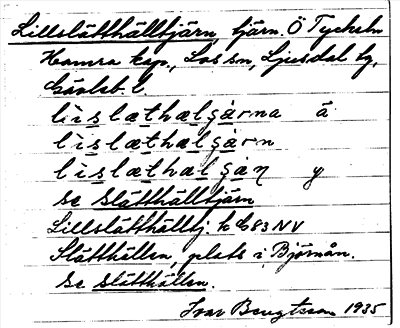 Lillslätthälltjärn, tjärn. Ö Tyckeln
Hamra kap., Los sn, Ljusdal tg,
Gävleb. l.
lislæthælgårna ä
lislæthælgårn
lislæthælgåɳ y
se Slätthälltjärn
Lillslätthälltj. k C83 NV
Slätthällen, plats i Björnån.
se Slätthällen.
Ivar Bengtsson 1935